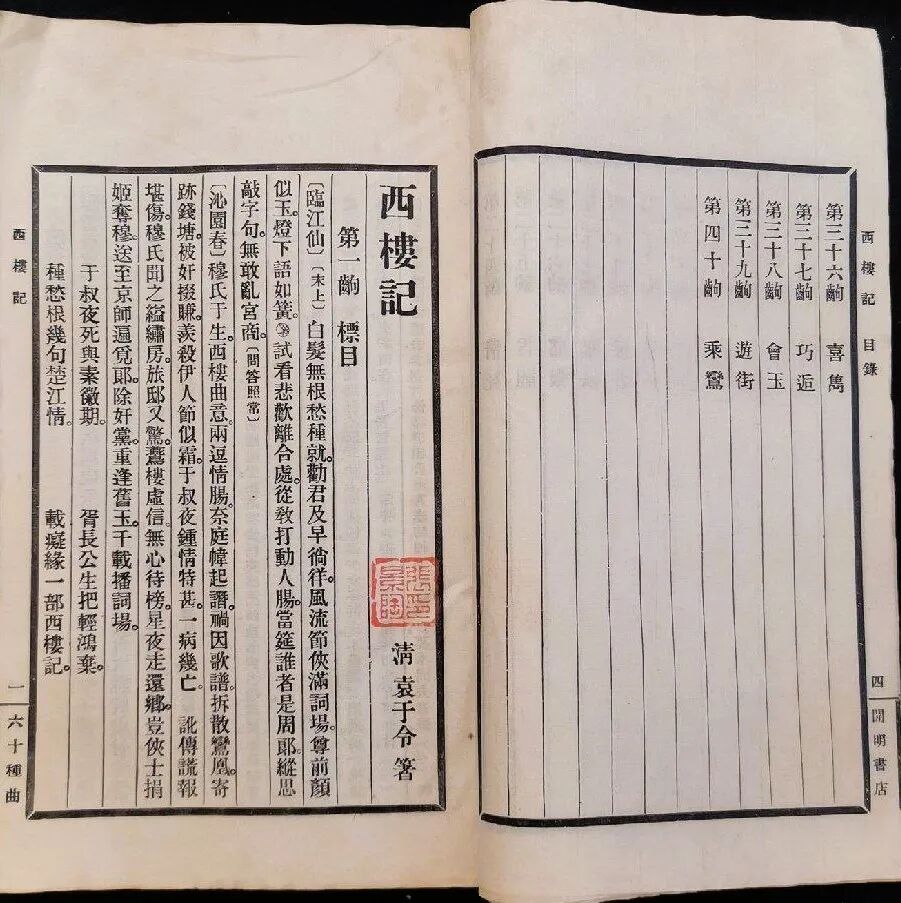 西樓記 目錄
第三十六齣 喜雋
第三十七齣 巧逅
第三十八齣 會玉
第三十九齣 遊街
第四十齣 乘鸞
四 開明書店
西樓記
清 袁于令 箸
第一齣 標目
〔臨江仙〕〔末上〕白髮無根愁種就。勸君及早徜徉。風流節俠滿詞場。尊前顏
似玉。燈下語如簧。試看悲歡離合處。從教打動人腸。當筵誰者是周郎。縱思
敲字句。無敢亂宮商。〔問答照常〕
〔沁園春〕穆氏于生。西樓曲意。兩逗情腸。奈庭幃起譖。禍因歌譜。拆散鸞凰。寄
跡錢塘。被奸掇賺。羨殺伊人節似霜。于叔夜鍾情特甚。一病幾亡。 訛傳謊報
堪傷。穆氏聞之縊繡房。旅邸又驚。鸞樓虛信。無心待榜。星夜走還鄉。豈俠士捐
姬奪穆。送至京師遍覓郎。除奸黨。重逢舊玉。千載播詞場。
于叔夜死與素徽期。 胥長公生把輕鴻棄。
種愁根幾句楚江情。 載癡緣一部西樓記。
西樓記
一 六十種曲